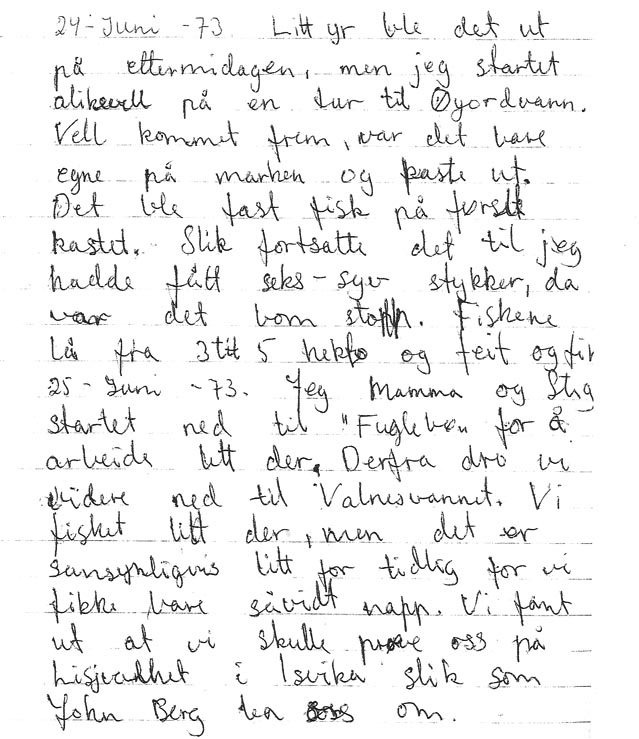 24-Juni -73. Litt yr ble det ut
på ettermidagen, men jeg startet
alikevell på en tur til Øyordvann.
Vell kommet frem, var det bare
egne på marken og kaste ut.
Det ble fast fisk på første
kastet. Slik fortsatte det til jeg
hadde fått seks-syv stykker, da
var det bom stopp. Fiskene
lå fra 3 til 5 hekto og feit og fin
25-Juni -73. Jeg Mamma og Stig
startet ned til "Fuglebo" for å
arbeide litt der. Derfra dro vi
videre ned til Valnesvannet. Vi
fisket litt der, men det er
sansynligvis litt for tidlig for vi
fikk bare såvidt napp. Vi fant
ut at vi skulle prøve oss på
i Isvika slik som
John Berg ba oss om.